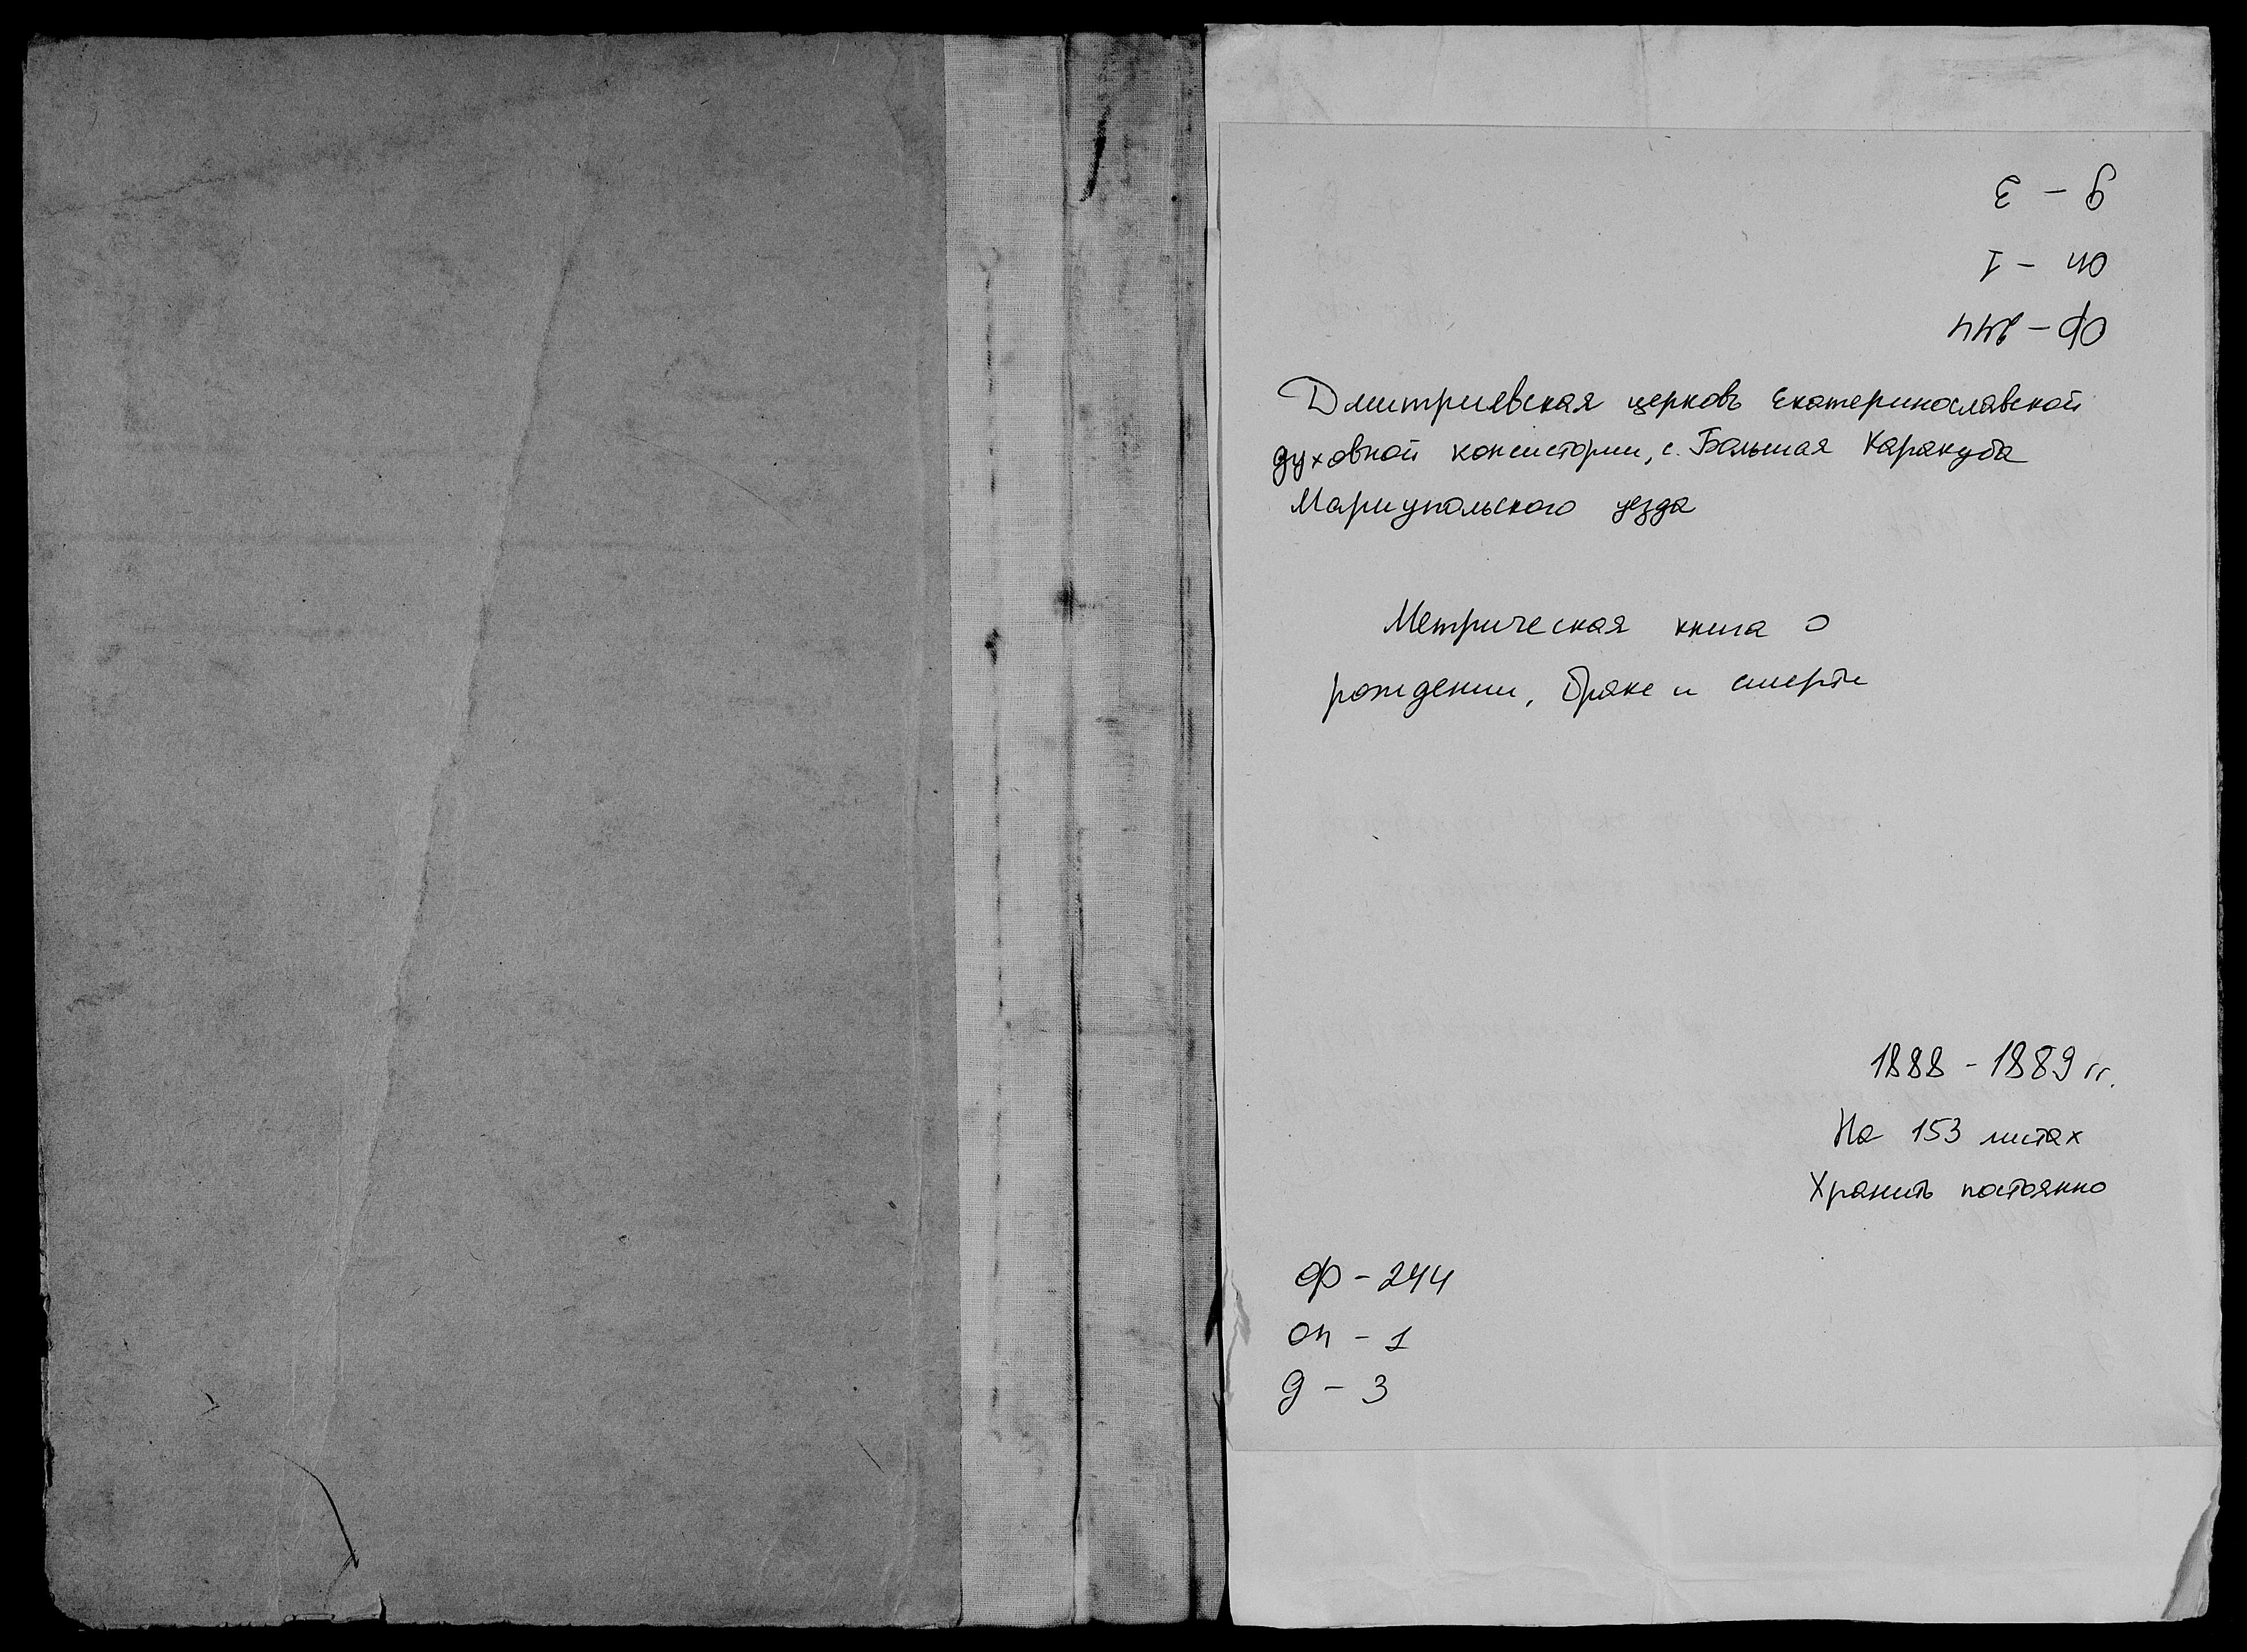 д - 3
оп - 1
ф - 244
Дмитриевская церковь Екатеринославской
духовной консистории, с. Большая Каракуба
Мариупольского уезда
Метрическая книга о
рождении, браке и смерти
1888 - 1889 гг.
На 153 листах
Хранить постоянно
ф - 244
оп - 1
д - 3